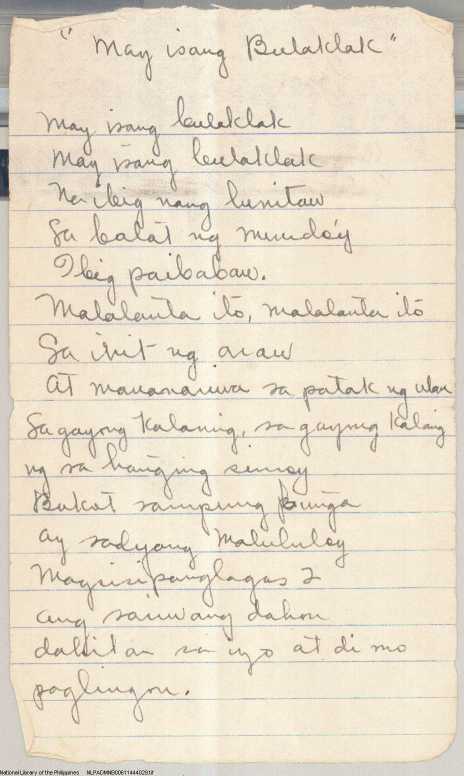 "May isang Bulaklak"
May isang bulaklak
May isang bulaklak
Na ibig nang lumitaw
Sa balat ng mundo'y
Ibig paibabaw.
Malalanta ito, malalanta ito
Sa init ng araw
At mananariwa sa patak ng ulan
Sa gayong kalamig, sa gayong kalamig
ng sa hanging simoy
Bakat sampung bunga
ay sadyang mahuhulog
Magsisipanglagas 2
ang sariwang dahon
dahilan sa iyo at di mo
paglingon.
National Library of the Philippines